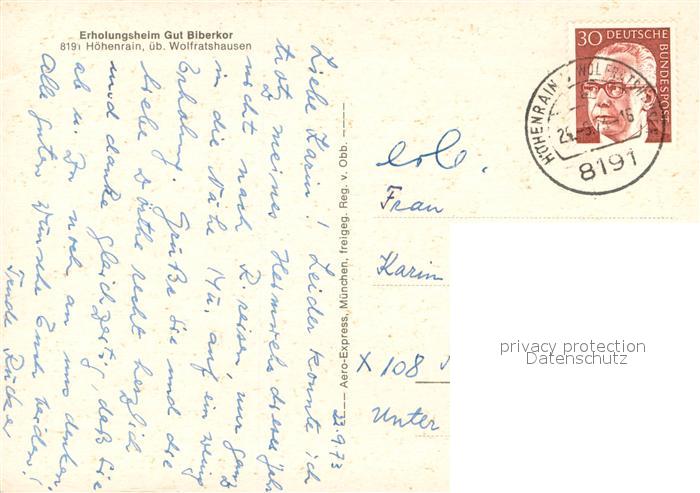 Erholungsheim Gut Biberkor
8191 Höhenrain, üb. Wolfratshausen
Liebe Karin! Leider konnte ich
trotz meines Heimwehs dieses Jahr
nicht nach R. reisen, nur ganz
in die Nähe 14 T. auf ein wenig
Erholung. Grüße Sie und die
liebe Dörthe recht herzlich
und danke gleichzeitig, daß Sie
ab u. zu noch an uns denken.
Alle guten Wünsche Euch beiden!
Trude
22.9.73
Aero-Express, München, freigeg. Reg. v. Obb.
30 DEUTSCHE
BUNDESPOST
HÖHENRAIN
8191
erl.
Frau
Karin
X 108
Unter
privacy protection
Datenschutz